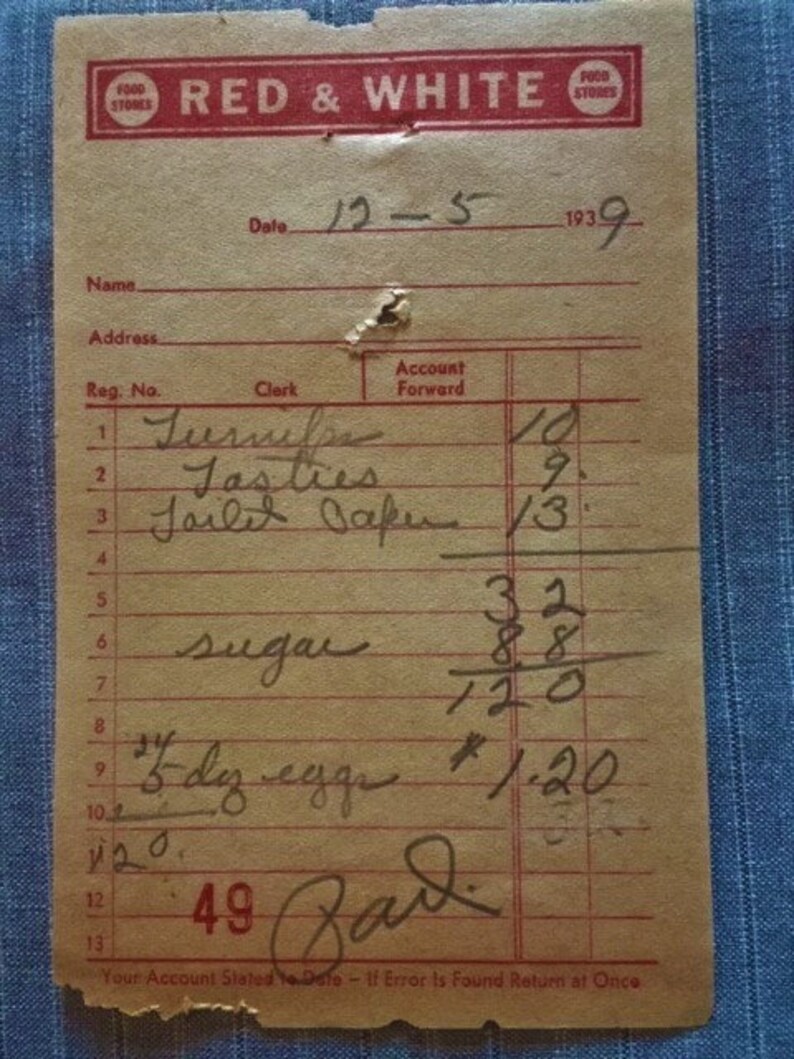 FOOD STORES RED & WHITE FOOD STORES
Date 12 - 5 1939
Name
Address
Reg. No. Clerk Account Forward
1 Turnips 10
2 Tasties 9
3 Toilet Paper 13
4
5 32
6 sugar 88
7 120
8
24
9 5 doz eggs $1.20
10
120
12 49 Paid.
13
Your Account Stated to Date – If Error Is Found Return at Once